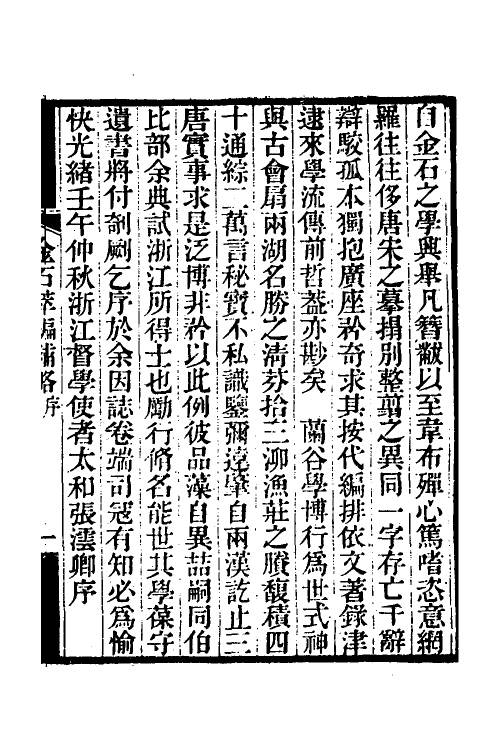 自金石之學興舉凡簪黻以至韋布殫心篤嗜恣意網
羅往往侈唐宋之摹搨別整翦之異同一字存亡千辭
辯駮孤本獨抱廣座矜奇求其按代編排依文著錄津
逮來學流傳前哲葢亦尠矣　蘭谷學博行爲世式神
與古會扇兩湖名勝之淸芬拾三泖漁莊之賸馥積四
十通綜一萬言秘寶不私識鑒彌遠肇自兩漢訖止三
唐實事求是泛博非矜以此例彼品藻自異喆嗣同伯
比部余典試浙江所得士也勵行脩名能世其學葆守
遺書將付剞劂乞序於余因誌卷端司冦有知必爲愉
快光緒壬午仲秋浙江督學使者太和張澐卿序
金石萃編補略序
一